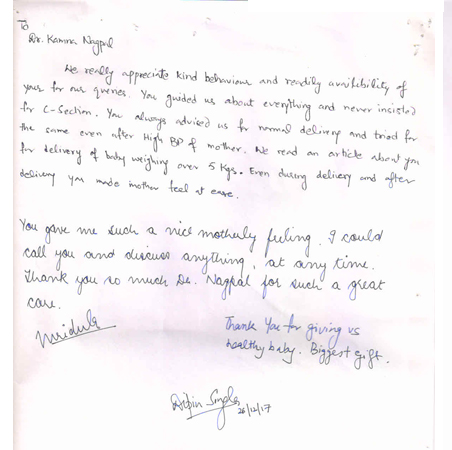 To
Dr. Kamna Nagpal
We really appreciate kind behaviour and readily availibility of
yours for our queries. You guided us about everything and never insisted
for C-Section. You always advised us for normal delivery and tried for
the same even after High BP of mother. We read an article about you
for delivery of baby weighing over 5 Kgs. Even during delivery and after
delivery you made mother feel at ease.
You gave me such a nice motherly feeling. I could
call you and discuss anything, at any time.
Thank you so much Dr. Nagpal for such a great
care.
Mridula
Thank You for giving us
healthy baby. Biggest gift.
26/12/17